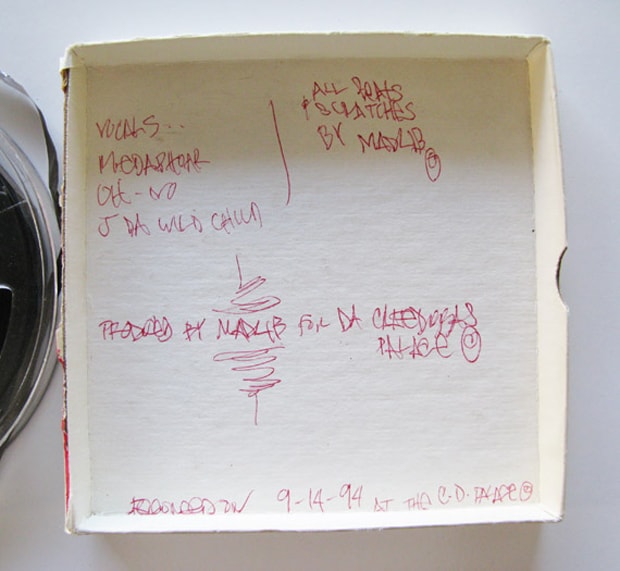 VOCALS..
MEDAPHOAR
OH-NO
J DA WILD CHILD
ALL BEATS
& SCRATCHES
BY MADLIB
PRODUCED BY MADLIB FOR DA CREDUBAS
PALACE
RECORDED ON 9-14-94 AT THE C.D. PALACE